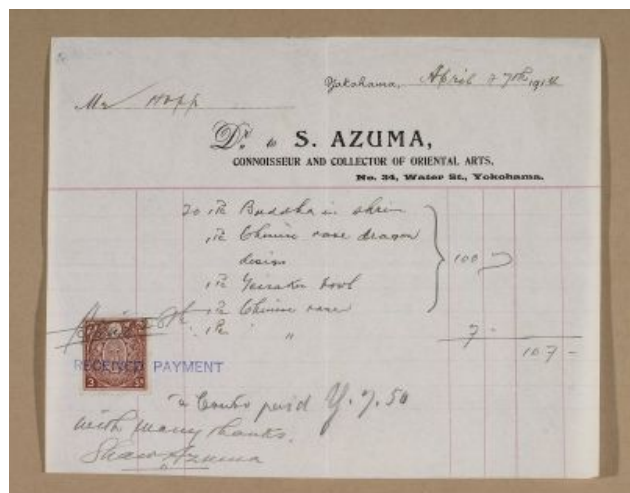 Yokohama, April 27th 191
Mr Hopp
Dr. to S. AZUMA,
CONNOISSEUR AND COLLECTOR OF ORIENTAL ARTS,
No. 34, Water St., Yokohama.
To 1 Pc Buddha in shrin
1 Pc Chinese vase dragon
design 100
1 Pc bowl
1 Pc Chinese vase
1 Pc " 7 -
107 -
April 28th
3 Sn
RECEIVED PAYMENT
paid Y. 7.50
with many thanks.
Azuma